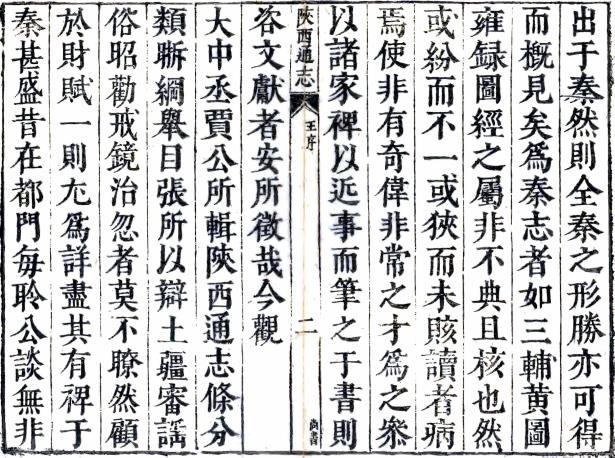 出于秦然則全秦之形勝亦可得
而概見矣爲秦志者如三輔黄圖
雍録圖經之屬非不典且核也然
或紛而不一或狹而未賅讀者病
焉使非有奇偉非常之才爲之叅
以諸家裨以近事而筆之于書則
咨文獻者安所徵哉今觀
陜西通志
王序
二
尚書
大中丞賈公所輯陜西通志條分
類晰綱舉目張所以辯土疆審謡
俗昭勸戒鏡治忽者莫不瞭然顧
於財賦一則尢爲詳盡其有裨于
秦甚盛昔在都門每聆公談無非